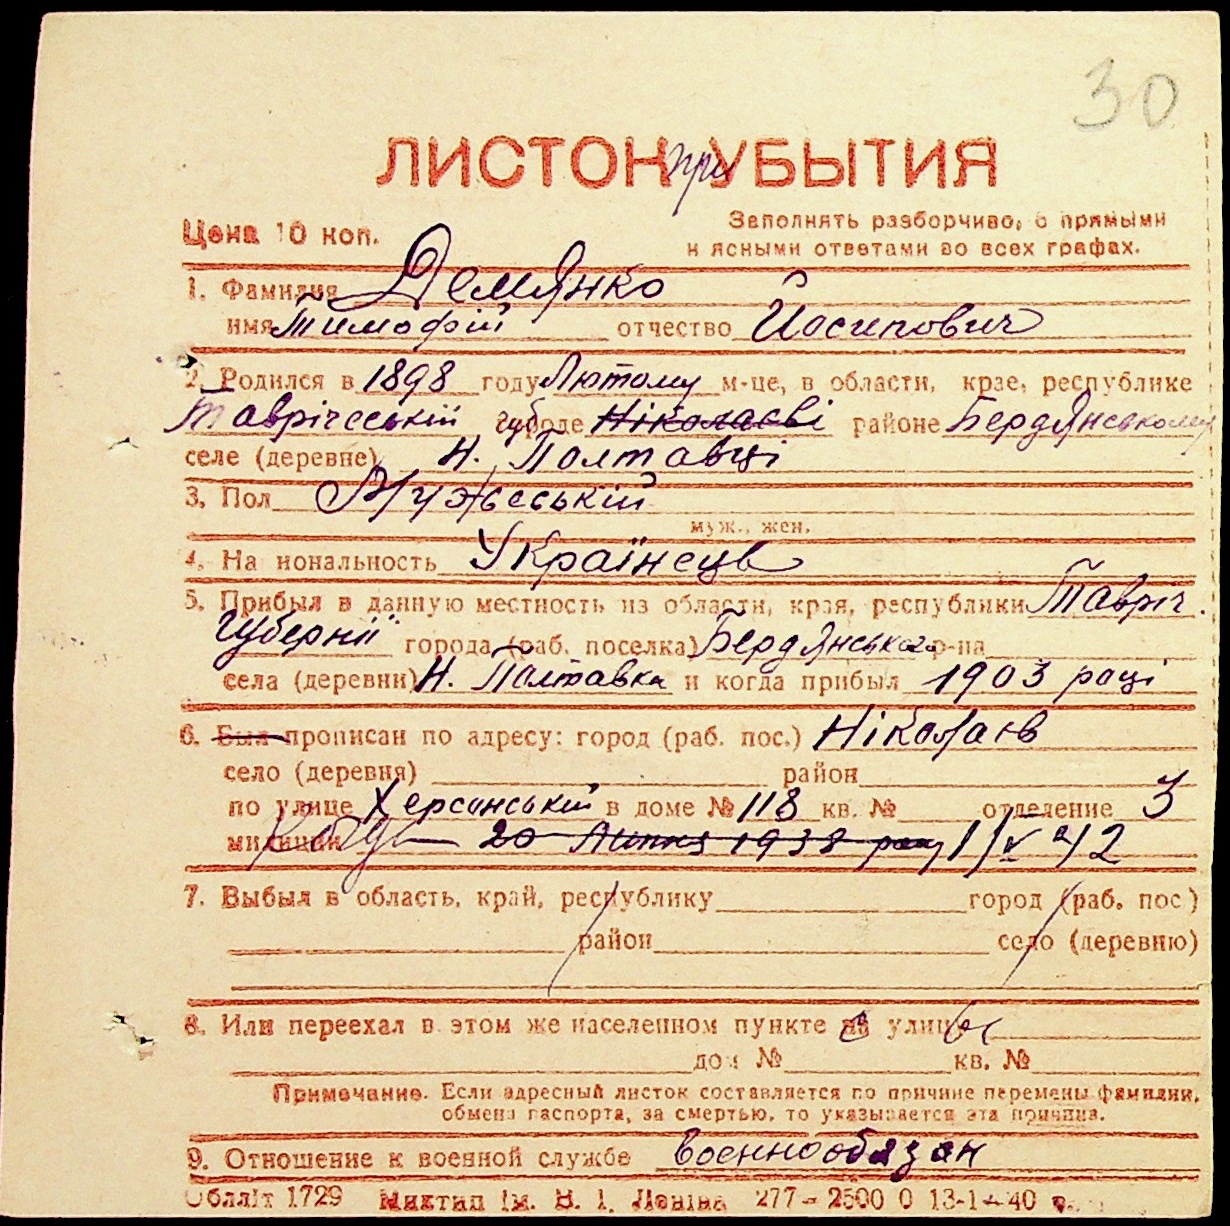 30
ЛИСТОК при УБЫТИЯ
Цена 10 коп.
Заполнять разборчиво, с прямыми
и ясными ответами во всех графах.
1. Фамилия Демянко
имя Тимофій отчество Йосипович
2. Родился в 1898 году Лютому м-це, в области, крае, республике
Таврічеській губ городе Ніколаєві районе Бердянському
селе (деревне) Н. Полтавці
3. Пол Мужеській
муж., жен.
4. Национальность Українець
5. Прибыл в данную местность из области, края, республики Tавріч.
Губернії города (раб. поселка) Бердянська р-на
села (деревни) Н. Полтавка и когда прибыл 1903 році
6. Был прописан по адресу: город (раб. пос.) Ніколаєв
село (деревня) район
по улице Херсонській в доме № 118 кв. № отделение 3
милиции 20 Липня 1938 року 1/V 42
7. Выбыл в область, край, республику город (раб. пос.)
район село (деревню)
8. Или переехал в этом же населенном пункте на улицу
дом № кв. №
Примечание. Если адресный листок составляется по причине перемены фамилии,
обмена паспорта, за смертью, то указывается эта причина.
9. Отношение к военной службе военнообязан
Обліт 1729 Миктип ім. В. І. Леніна 277 - 2500 0 13-1-40